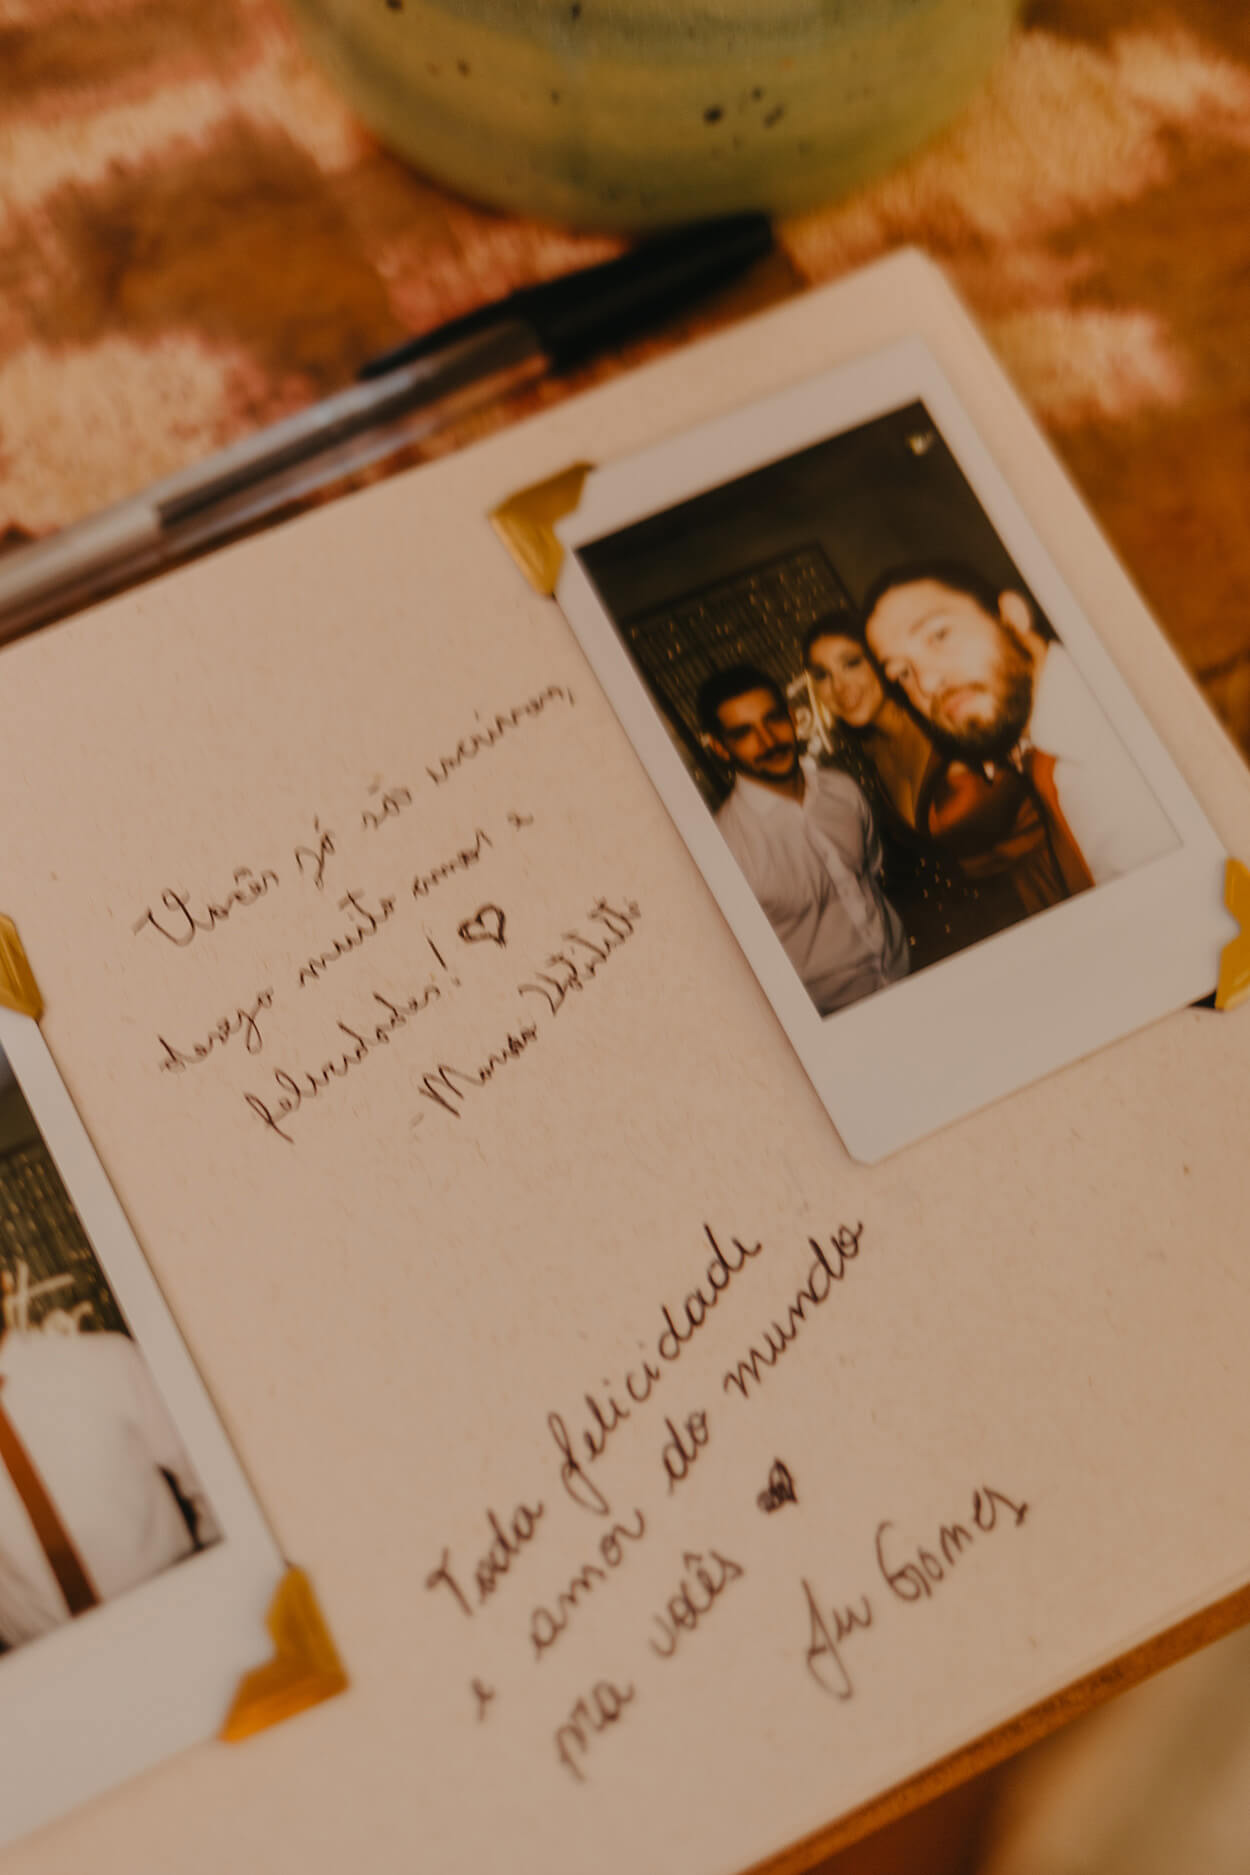 Vocês só são incríveis,
desejo muito amor e
felicidades! ♡
Toda felicidade
e amor do mundo
pra vocês ♥
Ju Gomes